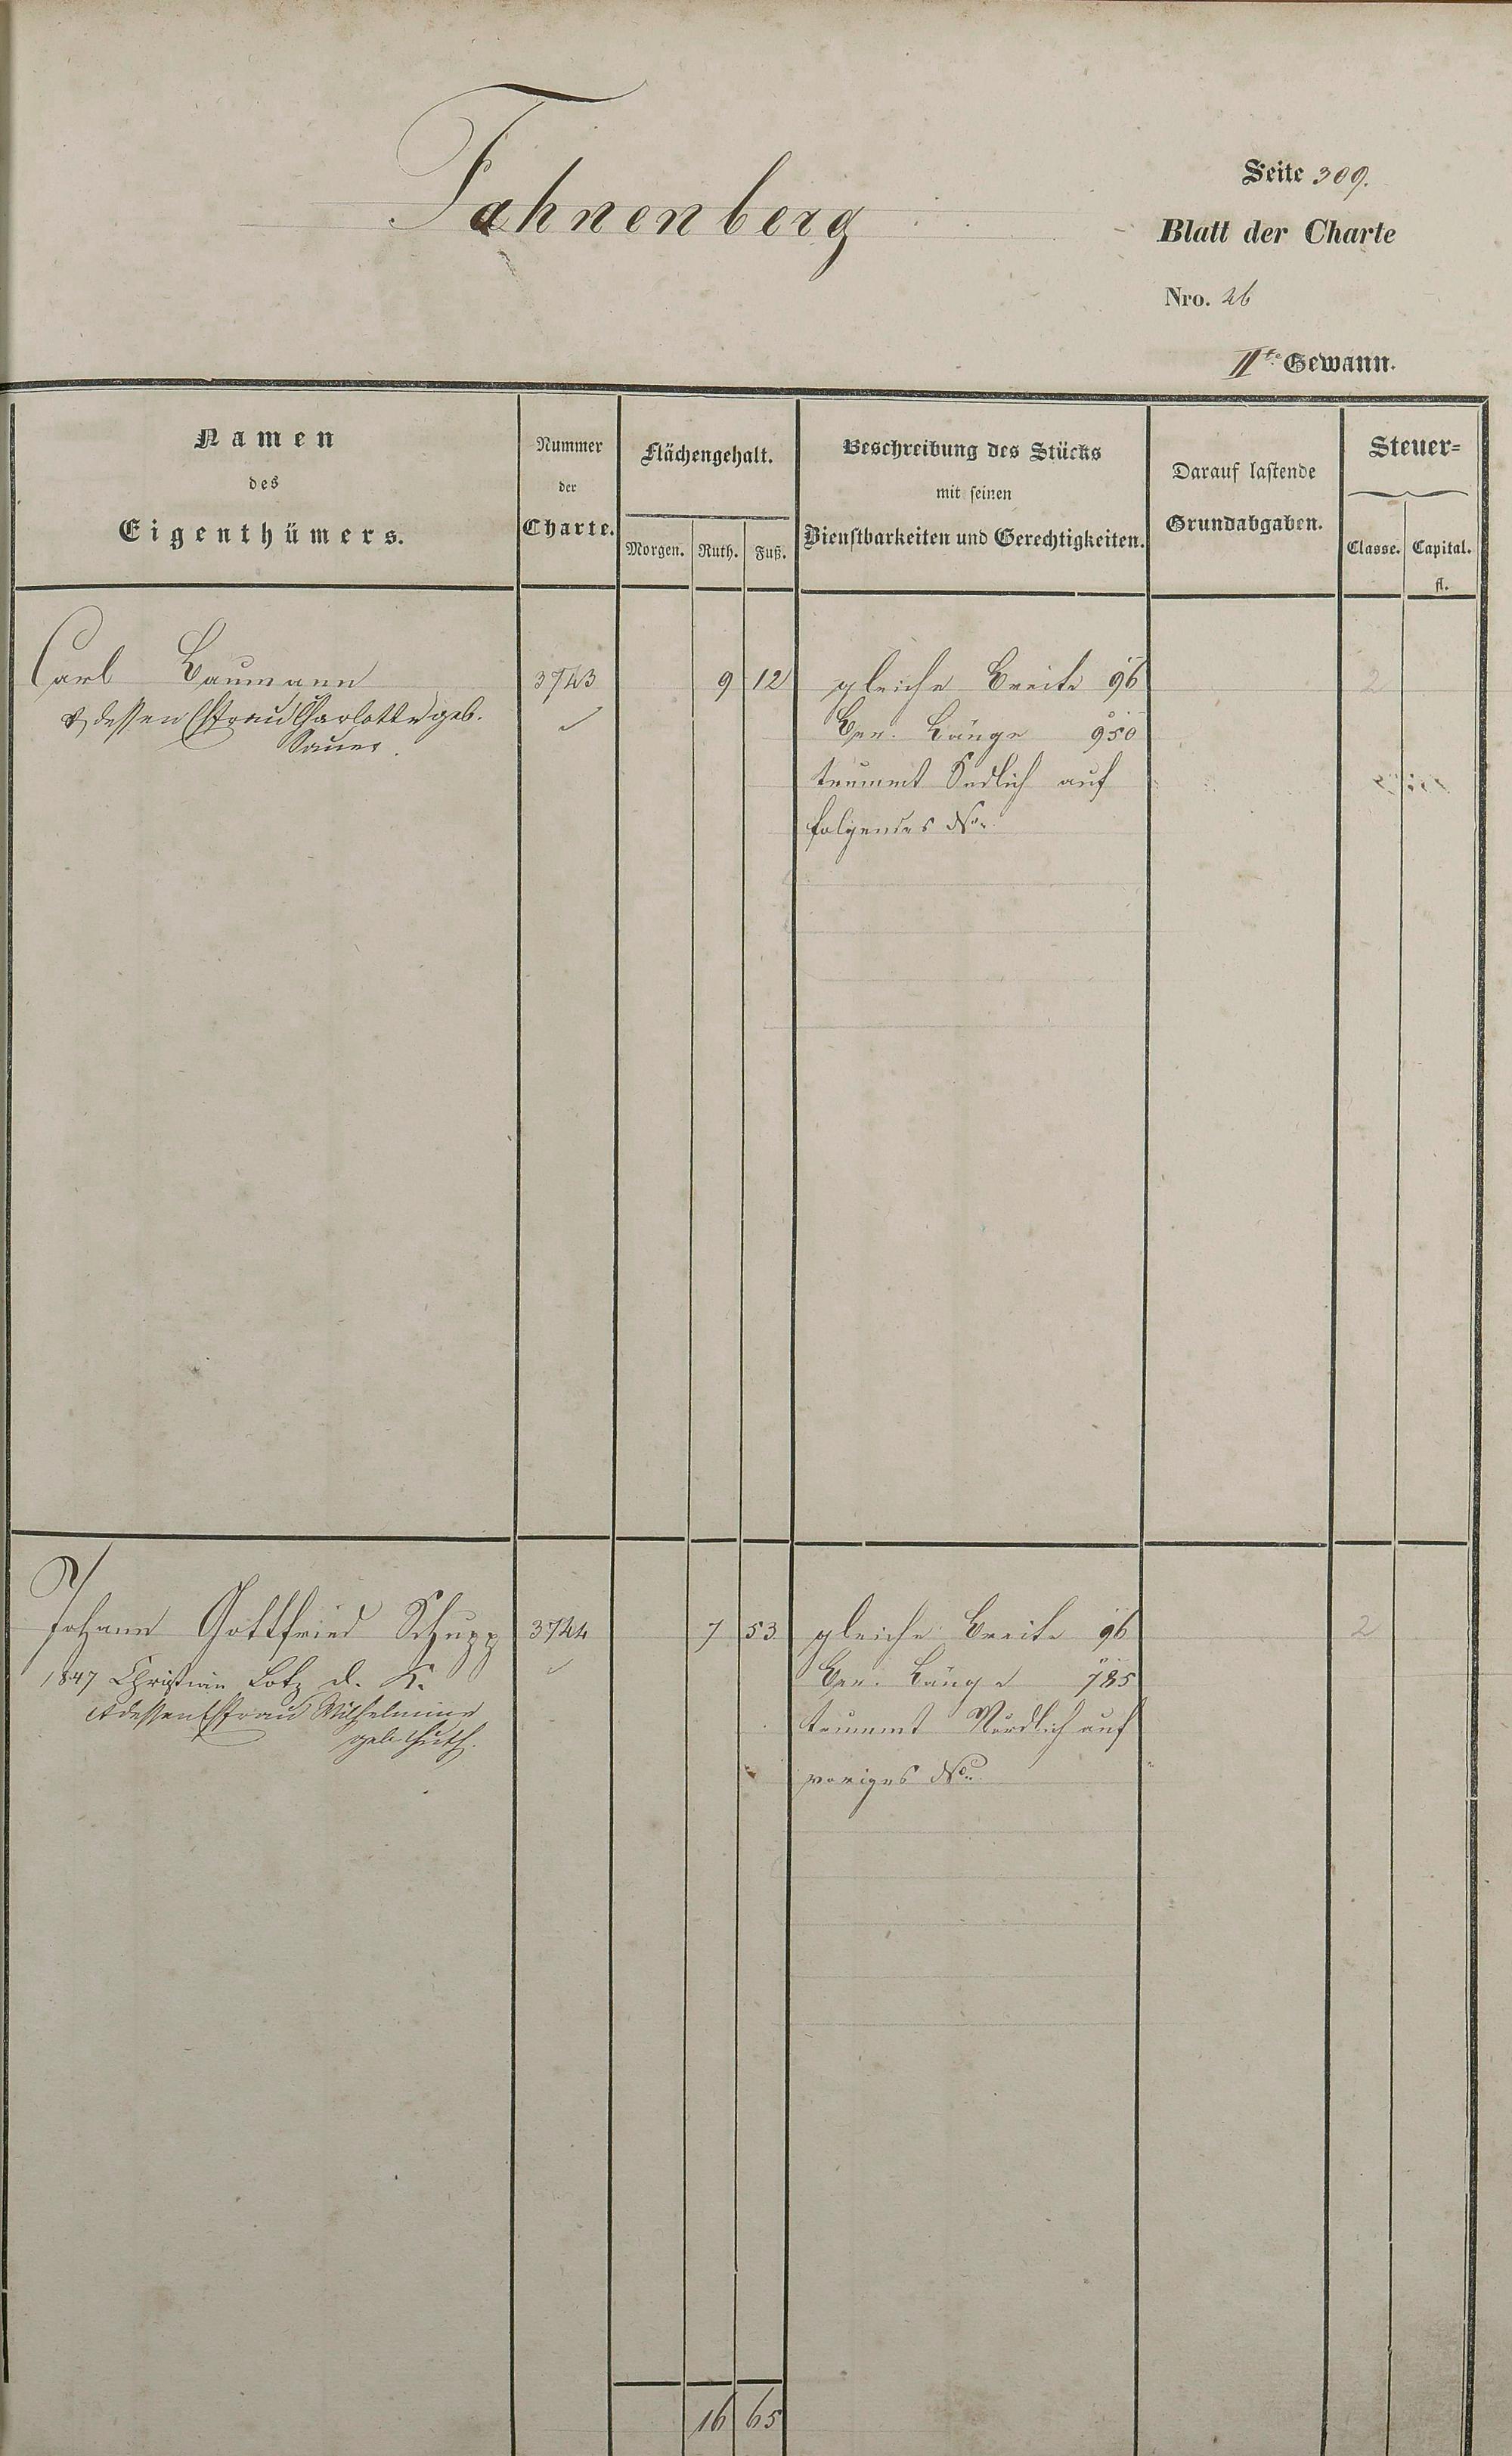 Fahnenberg
Seite 309.
Blatt der Charte
Nro. 26
IIte Gewann.
Namen
des
Eigenthümers.
Nummer
der
Charte.
Flächengehalt.
Morgen. Ruth. Fuß.
Beschreibung des Stücks
mit seinen
Dienstbarkeiten und Gerechtigkeiten.
Darauf lastende
Grundabgaben.
Steuer-
Classe. Capital.
fl.
Carl Baumann 3743 9 12 gleiche Breite 96 2
& dessen Ehfrau Charlotte geb. Ber. Länge 950
Sauer.
trummt Südlich auf
folgendes No.
Johann Gottfried Schupp 3744 7 53 gleiche Breite 96 2
1847 Christian Lotz d. K. Ber. Länge 785
& dessen Ehfrau Wilhelmine trummt Nördlich auf
geb.
voriges No.
16 65